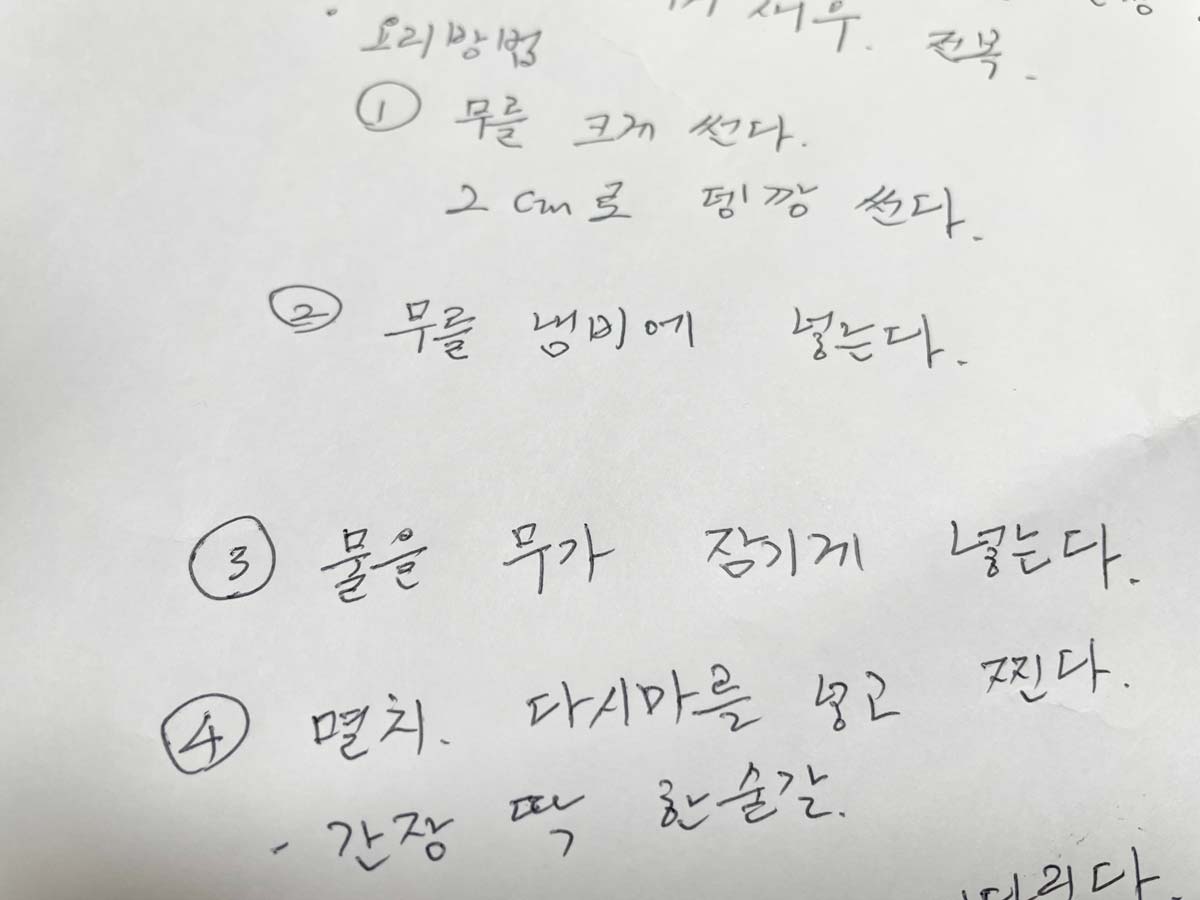 새우. 전복.
요리방법
① 무를 크게 썬다.
2cm로 뎅깡 썬다.
② 무를 냄비에 넣는다.
③ 물을 무가 잠기게 넣는다.
④ 멸치. 다시마를 넣고 찐다.
- 간장 딱 한술갈.